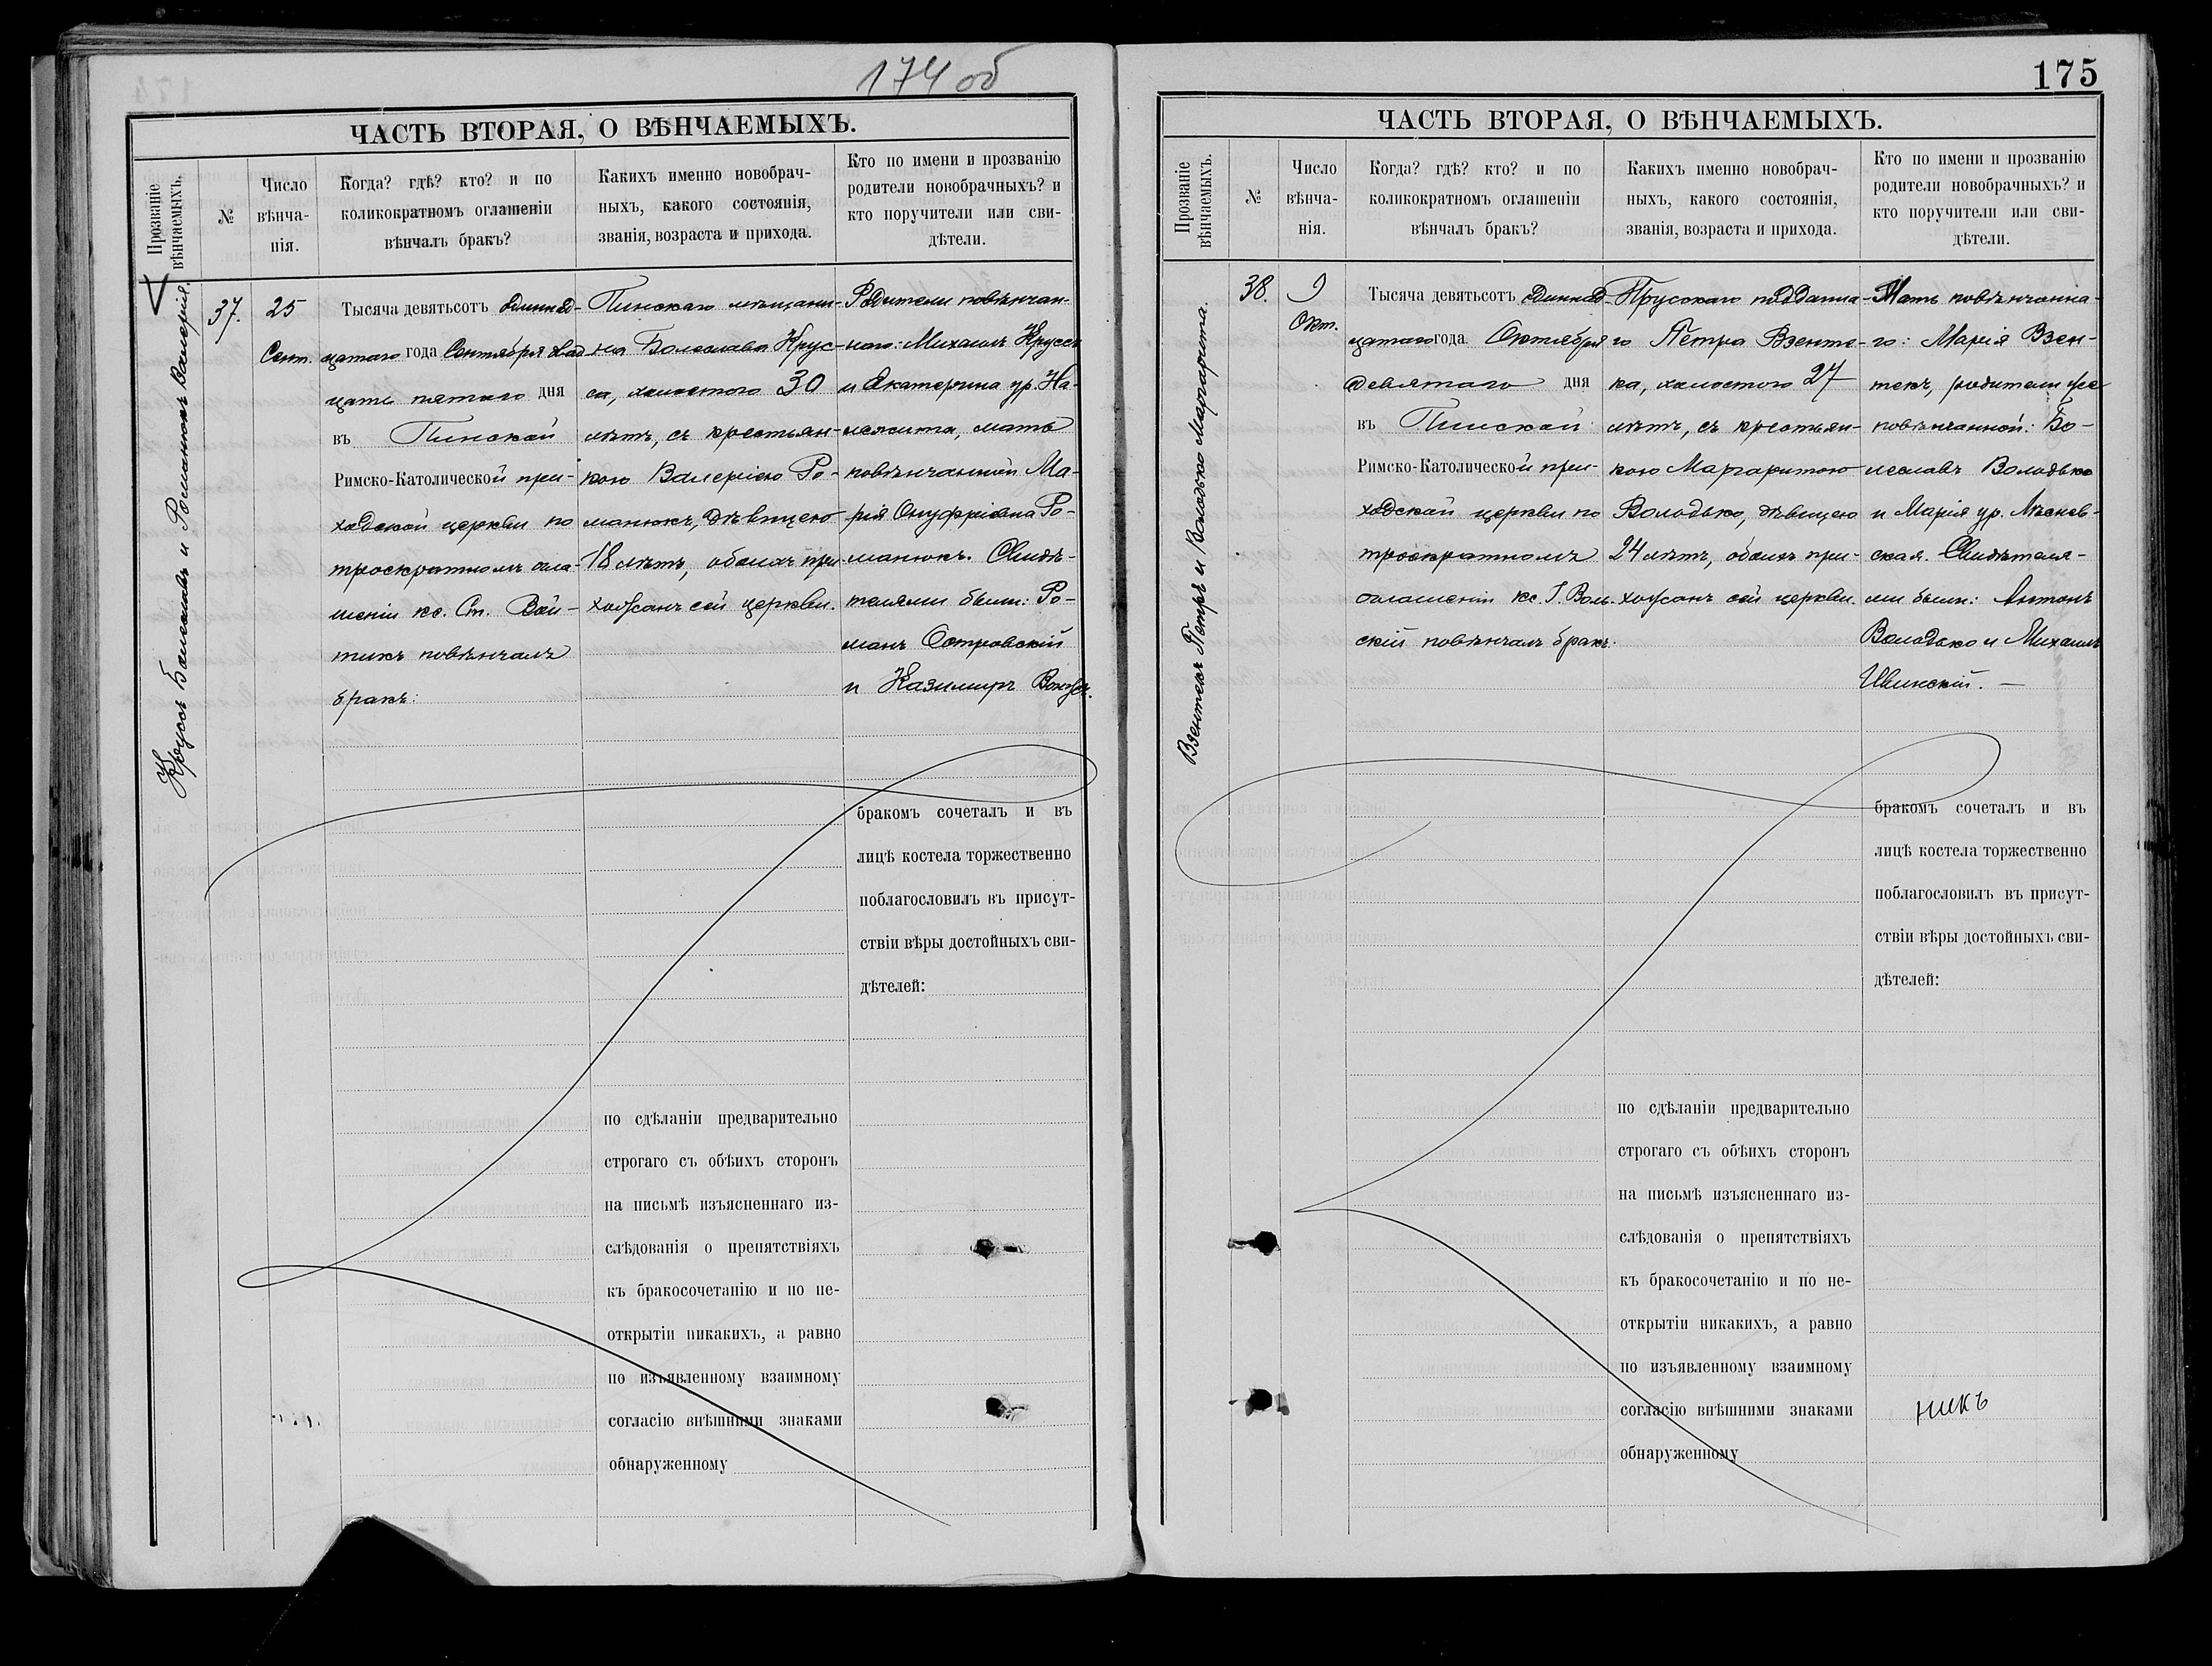 174 об
ЧАСТЬ ВТОРАЯ, О ВѢНЧАЕМЫХЪ.
Прозваніе
вѣнчаемыхъ.
№
Число
вѣнча-
нія.
Когда? гдѣ? кто? и по
коликократномъ оглашеніи
вѣнчалъ бракъ?
Какихъ именно новобрач-
ныхъ, какого состоянія,
званія, возраста и прихода.
Кто по имени и прозванію
родители новобрачныхъ? и
кто поручители или сви-
дѣтели.
Круссъ Болеславъ и Романюкъ Валерія.
37.
25
Сент.
Тысяча девятьсотъ единнад-
цатаго года Сентября двад-
цать пятаго дня
въ Пинской
Римско-Католической при-
ходской церкви по
троекратномъ огла-
шеніи кс. Ст. Вой-
тикъ повѣнчалъ
бракъ:
Пинскаго мѣщани-
на Болеслава Крус-
са, холостого 30
лѣтъ, съ крестьян-
кою Валеріею Ро-
манюкъ, дѣвицею
18 лѣтъ, обоихъ при-
хожанъ сей церкви.
Родители повѣнчан-
наго: Михаилъ Круссъ
и Екатерина ур. На-
мать
повѣнчанной Ма-
рія Онуфріевна Ро-
манюкъ. Свидѣ-
телями были: Ро-
манъ Островскій
и Казимиръ
бракомъ сочеталъ и въ
лицѣ костела торжественно
поблагословилъ въ присут-
ствіи вѣры достойныхъ сви-
дѣтелей:
по сдѣланіи предварительно
строгаго съ обѣихъ сторонъ
на письмѣ изъясненнаго из-
слѣдованія о препятствіяхъ
къ бракосочетанію и по не-
открытіи никакихъ, а равно
по изъявленному взаимному
согласію внѣшними знаками
обнаруженному
175
ЧАСТЬ ВТОРАЯ, О ВѢНЧАЕМЫХЪ.
Прозваніе
вѣнчаемыхъ.
№
Число
вѣнча-
нія.
Когда? гдѣ? кто? и по
коликократномъ оглашеніи
вѣнчалъ бракъ?
Какихъ именно новобрач-
ныхъ, какого состоянія,
званія, возраста и прихода.
Кто по имени и прозванію
родители новобрачныхъ? и
кто поручители или сви-
дѣтели.
Взентекъ Петръ и Володько Маргарита.
38.
9
Окт.
Тысяча девятьсотъ единнад-
цатаго года Октября
девятаго дня
въ Пинской
Римско-Католической при-
ходской церкви по
троекратномъ
оглашеніи кс. І. Воль-
скій повѣнчалъ бракъ:
Прусскаго поддана-
го Петра Взенте-
ка, холостого 27
лѣтъ, съ крестьян-
кою Маргаритою
Володько, дѣвицею
24 лѣтъ, обоихъ при-
хожанъ сей церкви.
Мать повѣнчанна-
го: Марія Взен-
текъ, родители же
повѣнчанной: Бо-
леславъ Володько
и Марія ур. Лѣснев-
ская. Свидѣтеля-
ми были: Антонъ
Володько и Михаилъ
Ивинскій. —
бракомъ сочеталъ и въ
лицѣ костела торжественно
поблагословилъ въ присут-
ствіи вѣры достойныхъ сви-
дѣтелей:
по сдѣланіи предварительно
строгаго съ обѣихъ сторонъ
на письмѣ изъясненнаго из-
слѣдованія о препятствіяхъ
къ бракосочетанію и по не-
открытіи никакихъ, а равно
по изъявленному взаимному
согласію внѣшними знаками
обнаруженному
никъ